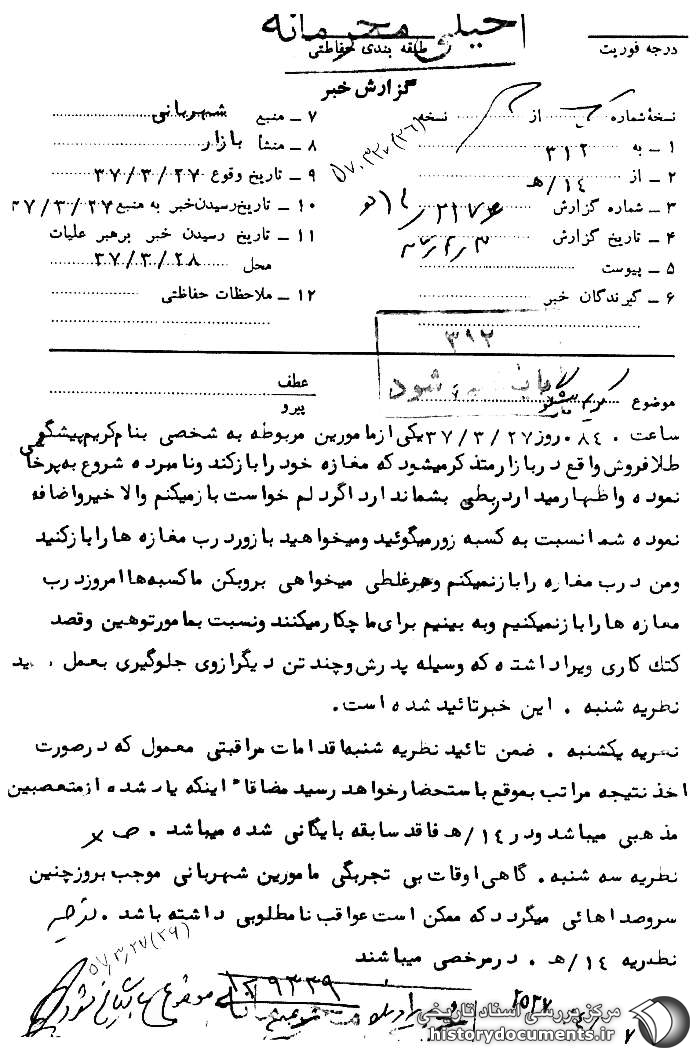 خیلی محرمانه
درجه فوریت
طبقه بندی حفاظتی
گزارش خبر
نسخهٔ شماره از نسخه
۱ ــ به ۳۱۲
۲ ــ از ۱۴/ ه‍
۳ ــ شماره گزارش
۴ ــ تاریخ گزارش
۵ ــ پیوست
۶ ــ گیرندگان خبر
۷ ــ منبع شهربانی
۸ ــ منشأ بازار
۹ ــ تاریخ وقوع ۳۷/۳/۲۷
۱۰ ــ تاریخ رسیدن خبر به منبع ۳۷/۳/۲۷
۱۱ ــ تاریخ رسیدن خبر برهبر عملیات
محل ۳۷/۳/۲۸
۱۲ ــ ملاحظات حفاظتی
۵۷،۳،۳۰(۳۶)
۳۱۲
بایگانی شود
موضوع
عطف
پیرو
ساعت ۰۸۴۰ روز ۳۷/۳/۲۷ یکی از مامورین مربوطه به شخصی بنام کریم پیشگوئی
طلافروش واقع در بازار متذکر میشود که مغازه خود را باز کند و نامبرده شروع به پرخا
نموده و اظهار میدارد ربطی بشما ندارد اگر دلم خواست باز میکنم و الا خیر و اضافه
نموده شما نسبت به کسبه زور میگوئید و میخواهید با زور درب مغازه ها را باز کنید
و من درب مغازه را باز نمیکنم و هر غلطی میخواهی برو بکن ما کسبه ها امروز درب
مغازه ها را باز نمیکنیم و به بینیم برای ما چکار میکنند و نسبت بمامور توهین و قصد
کتک کاری ویرا داشته که وسیله پدرش و چند تن دیگر از وی جلوگیری بعمل ید
نظریه شنبه . این خبر تائید شده است .
نظریه یکشنبه . ضمن تائید نظریه شنبه اقدامات مراقبتی معمول که در صورت
اخذ نتیجه مراتب بموقع باستحضار خواهد رسید مضافا" اینکه یاد شده از متعصبین
مذهبی میباشد و در ۱۴/ ه‍ فاقد سابقه بایگانی شده میباشد .
نظریه سه شنبه . گاهی اوقات بی تجربگی مامورین شهربانی موجب بروز چنین
سروصداهائی میگردد که ممکن است عواقب نامطلوبی داشته باشد .
نظریه ۱۴/ ه‍ . در مرخصی میباشند
۵۷،۳،۲۷(۲۹)
۱۲۹۳۳۹
۲۵۳۷
مرکز بررسی اسناد تاریخی
historydocuments.ir